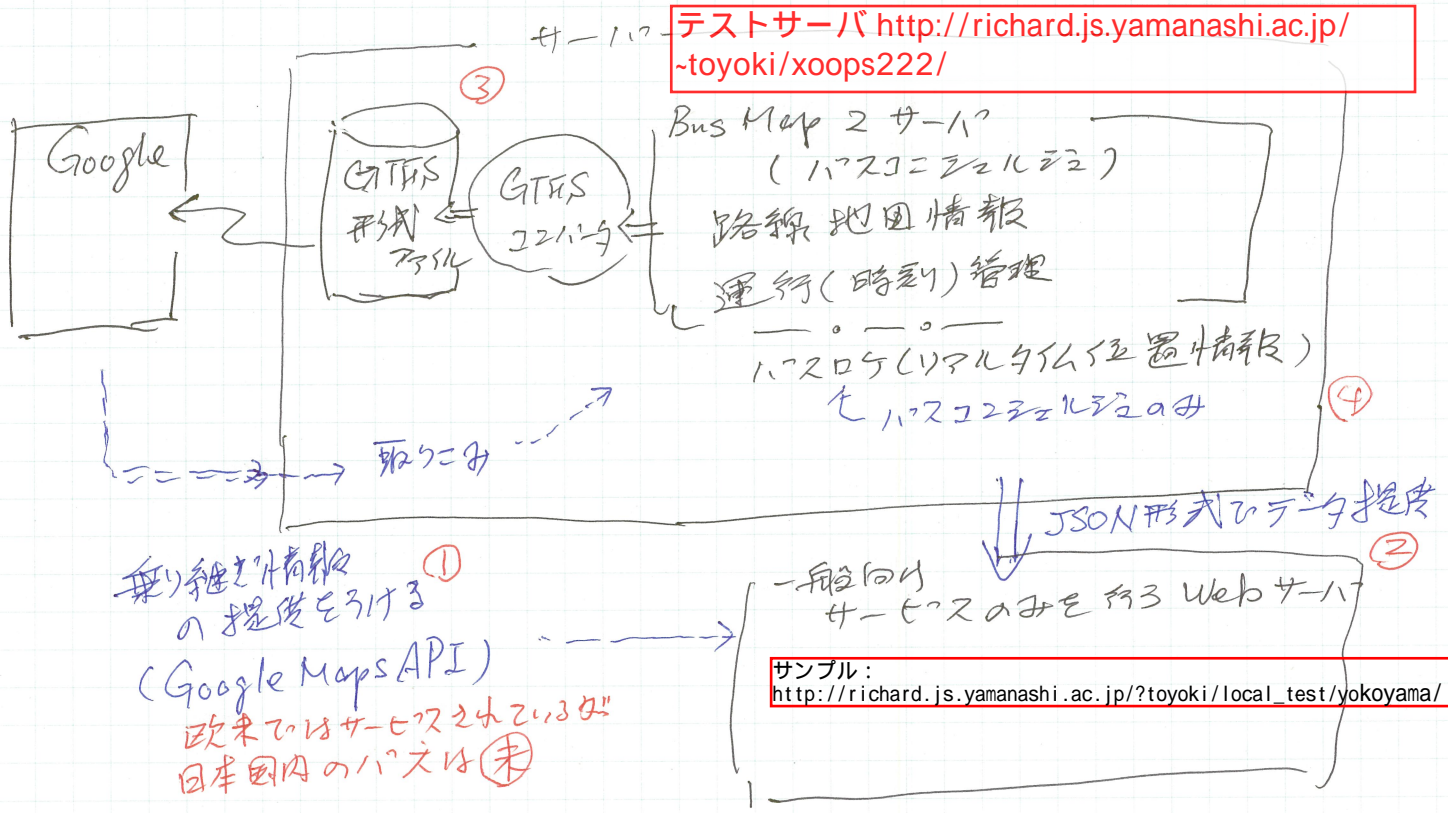 サーバー
テストサーバ http://richard.js.yamanashi.ac.jp/
~toyoki/xoops222/
③
Google
GTFS
形式
ファイル
GTFS
コンバータ
Bus Map 2 サーバ
(バスコンシェルジュ)
路線地図情報
運行(時刻)管理
バスロケ(リアルタイム位置情報)
バスコンシェルジュのみ
④
取りこみ
JSON形式でデータ提供
②
乗り継ぎ情報 ①
の提供をうける
(Google Maps API)
欧米ではサービスされているが
日本国内のバスは未
一般向け
サービスのみを行う Webサーバ
サンプル:
http://richard.js.yamanashi.ac.jp/?toyoki/local_test/yokoyama/